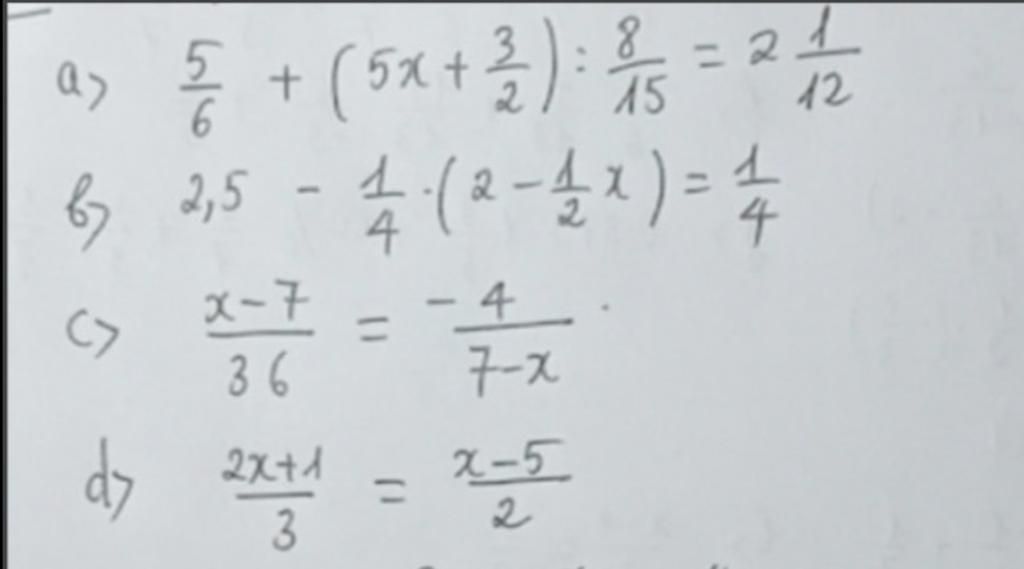 a) 5/6 + (5x + 3/2) : 8/15 = 2 1/12
b) 2,5 - 1/4 · (2 - 1/2 x) = 1/4
c) x-7/36 = -4/7-x
d) 2x+1/3 = x-5/2